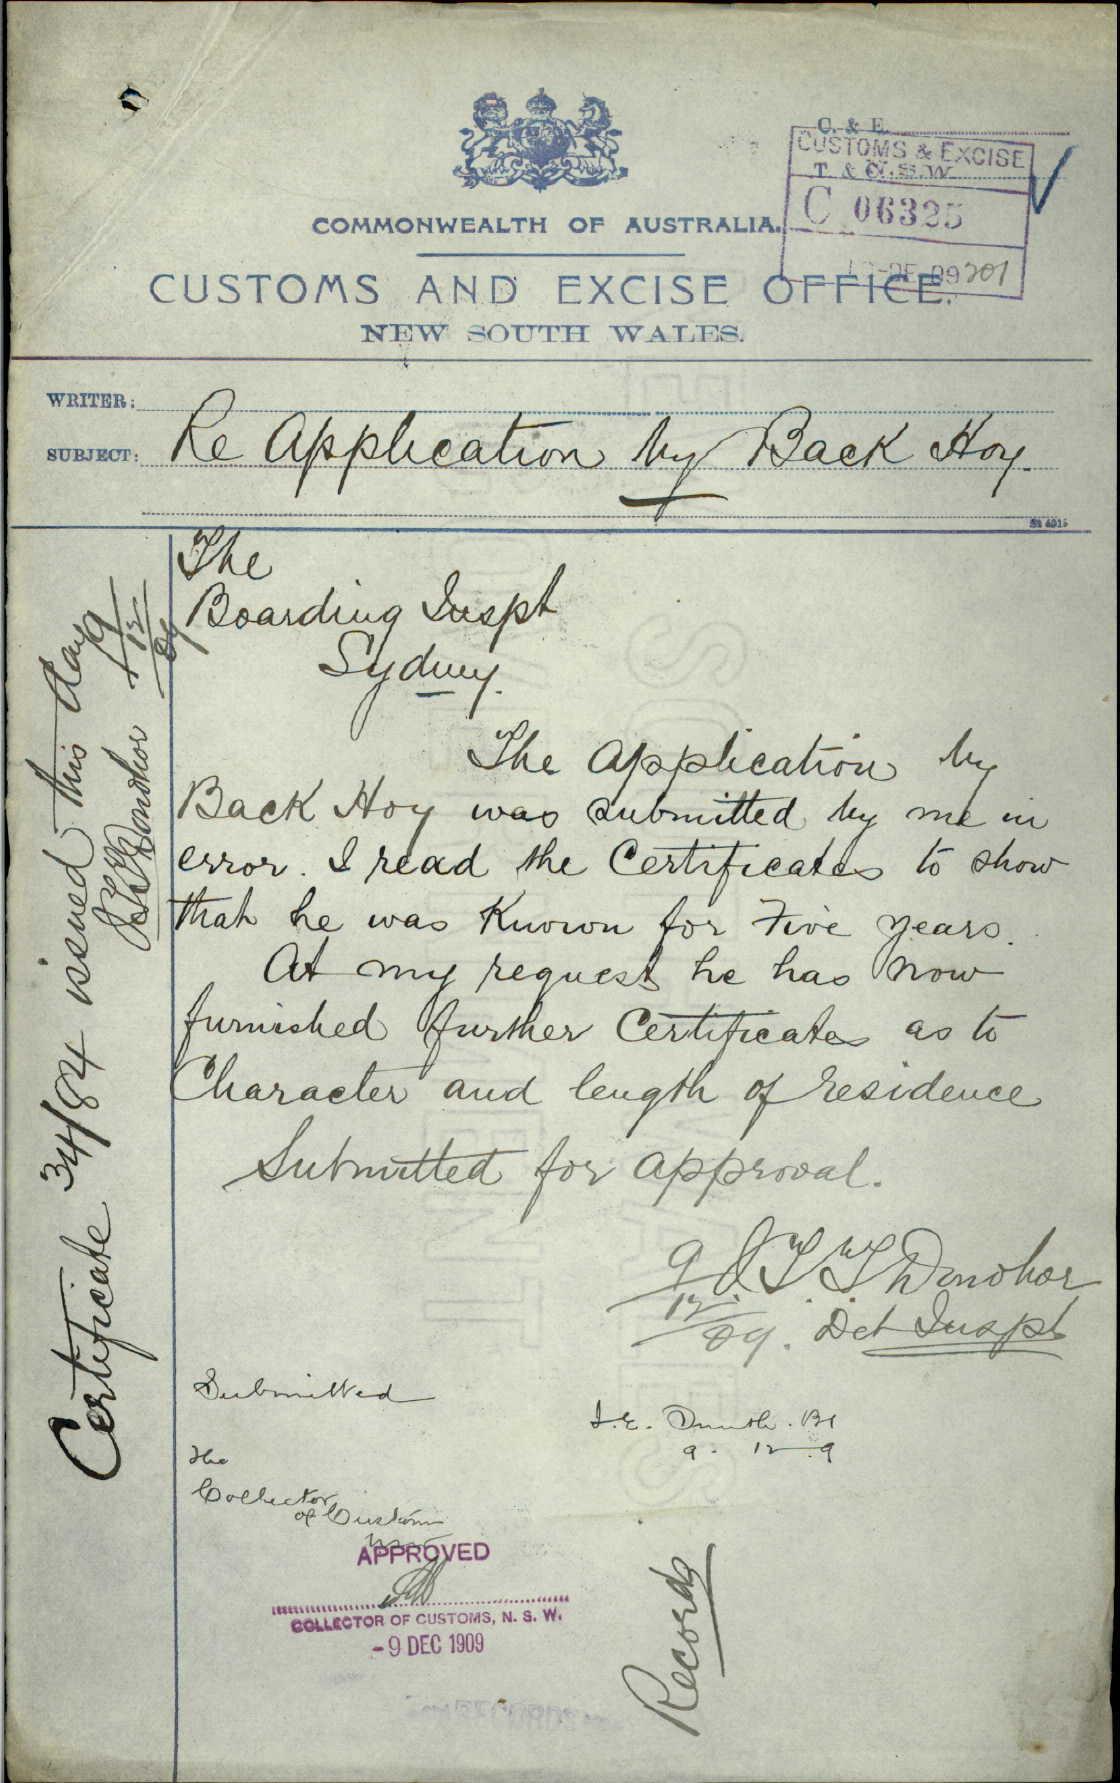 COMMONWEALTH OF AUSTRALIA.
C. & E.
CUSTOMS & EXCISE
T. & C.
N.S.W.
C 06325
DE 09 201
CUSTOMS AND EXCISE OFFICE.
NEW SOUTH WALES.
WRITER:
SUBJECT: Re Application by Back Hoy.
The
Boarding Inspt
Sydney.
The Application by
Back Hoy was submitted by me in
error. I read the Certificates to show
that he was Known for Five years.
At my request he has now
furnished further Certificates as to
Character and length of residence
Submitted for approval.
J T T Donohoe
9/12/09. Det Inspt
Certificate 34/84 issued this day 9/12/09
J T T Donohoe
Submitted
9. 12 9
The
Collector
of Customs
APPROVED
COLLECTOR OF CUSTOMS, N. S. W.
-9 DEC 1909
Records